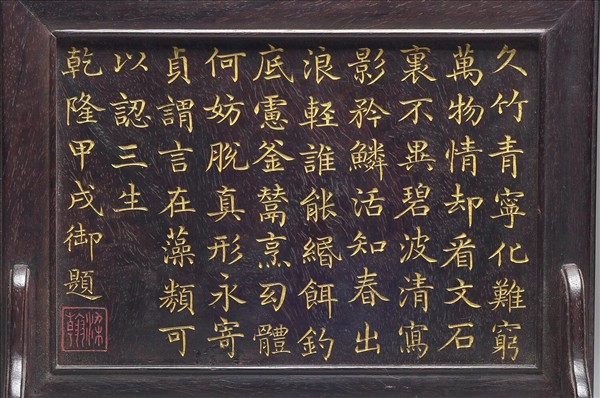 久竹青寧化難窮
萬物情却看文石
裏不異碧波清寫
影矜鱗活知春出
浪輕誰能緡餌釣
底慮釜鬵烹幻體
何妨脫真形永寄
貞謂言在藻類可
以認三生
乾隆甲戌御題
染翰